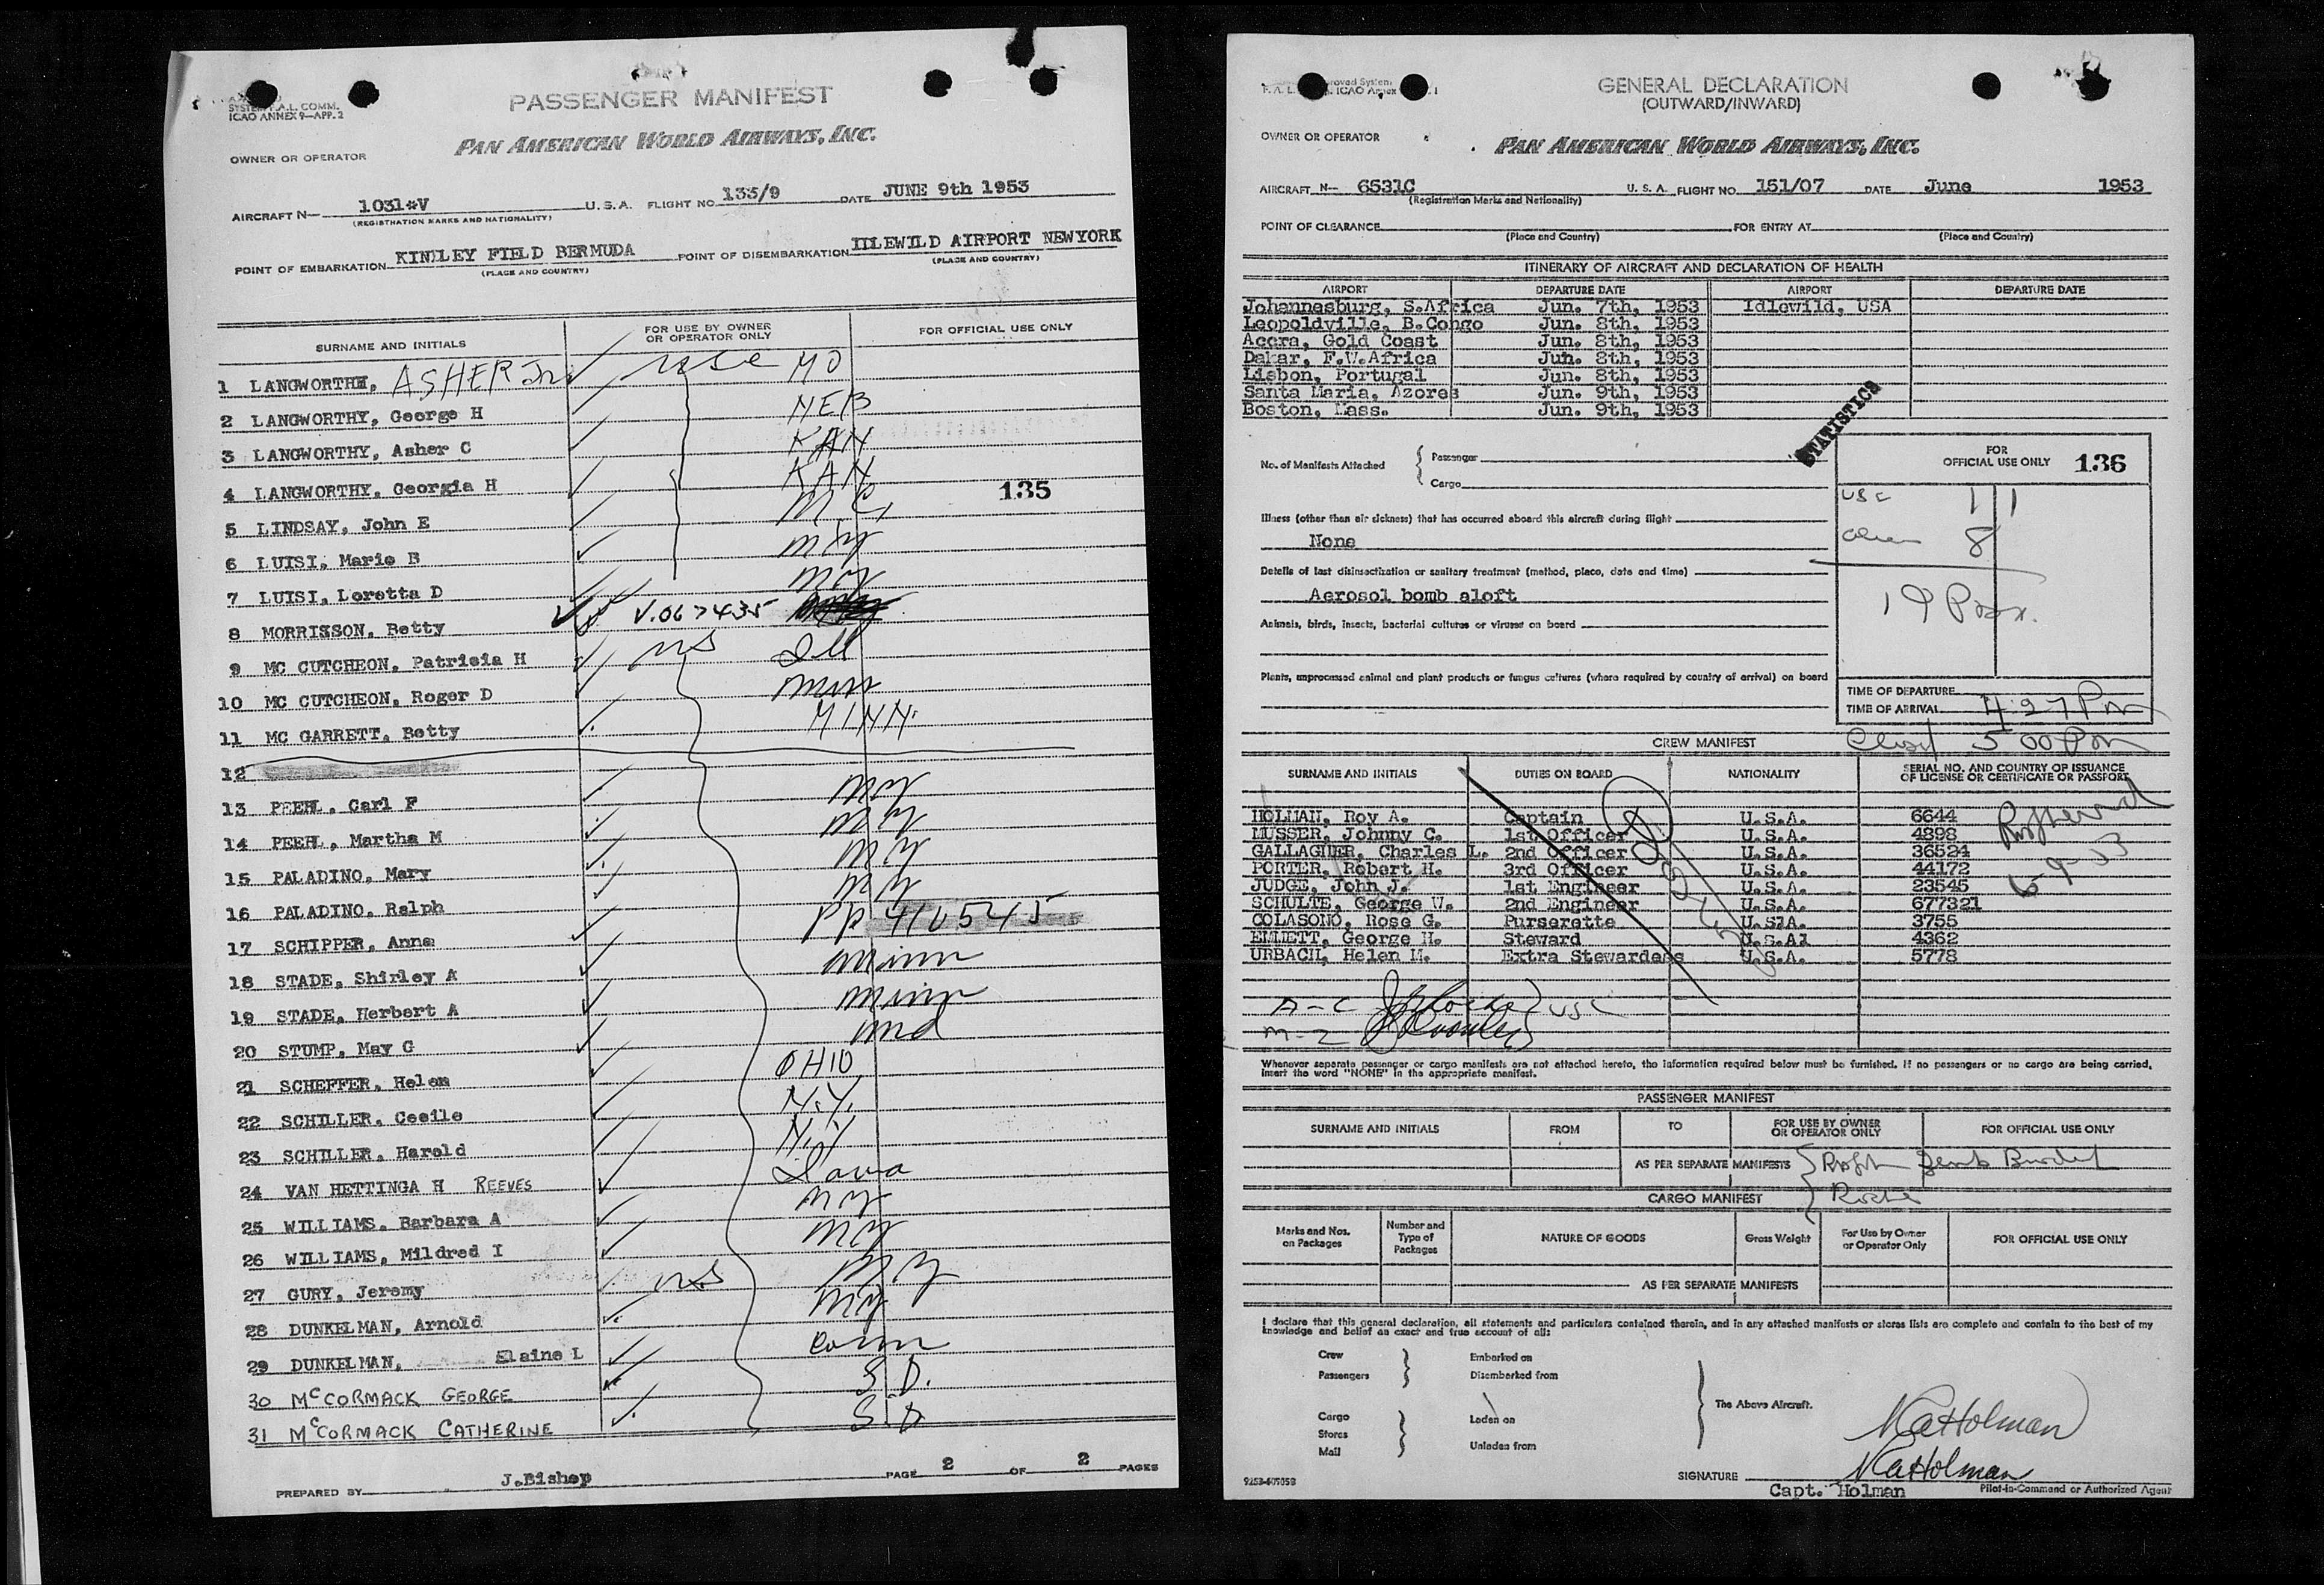 SYSTEM F.A.L. COMM.
ICAO ANNEX 9—APP. 2
PASSENGER MANIFEST
PAN AMERICAN WORLD AIRWAYS, INC.
OWNER OR OPERATOR
AIRCRAFT N— 1031*V U.S.A. FLIGHT NO 133/9 DATE JUNE 9th 1953
(REGISTRATION MARKS AND NATIONALITY)
POINT OF EMBARKATION KINDLEY FIELD BERMUDA POINT OF DISEMBARKATION IDLEWILD AIRPORT NEWYORK
(PLACE AND COUNTRY) (PLACE AND COUNTRY)
SURNAME AND INITIALS FOR USE BY OWNER OR OPERATOR ONLY FOR OFFICIAL USE ONLY
1 LANGWORTHY, ASHER Jr. usc MO
2 LANGWORTHY, George H NEB
3 LANGWORTHY, Asher C KAN
4 LANGWORTHY, Georgia H KAN
135
5 LINDSAY, John E N.C.
6 LUISI, Marie B NY
7 LUISI, Loretta D NY
8 MORRISSON, Betty V.067435
9 MC CUTCHEON, Patricia H us Ill
10 MC CUTCHEON, Roger D Minn
11 MC GARRETT, Betty MINN.
12
13 PEEHL, Carl F NY
14 PEEHL, Martha M NY
15 PALADINO, Mary NY
16 PALADINO, Ralph NY
17 SCHIPPER, Anna PP 410545
18 STADE, Shirley A minn
19 STADE, Herbert A minn
20 STUMP, May G md
21 SCHEFFER, Helen OHIO
22 SCHILLER, Cecile N.Y.
23 SCHILLER, Harold N.Y.
24 VAN HETTINGA H REEVES Iowa
25 WILLIAMS, Barbara A NY
26 WILLIAMS, Mildred I NY
27 GURY, Jeremy us NY
28 DUNKELMAN, Arnold NY
29 DUNKELMAN, Elaine L conn
30 McCORMACK GEORGE S.D.
31 McCORMACK CATHERINE S.D.
PREPARED BY J.Bishop PAGE 2 OF 2 PAGES
GENERAL DECLARATION
(OUTWARD/INWARD)
OWNER OR OPERATOR PAN AMERICAN WORLD AIRWAYS, INC.
AIRCRAFT N— 6531C U.S.A. FLIGHT NO. 151/07 DATE June 1953
(Registration Marks and Nationality)
POINT OF CLEARANCE FOR ENTRY AT
(Place and Country) (Place and Country)
ITINERARY OF AIRCRAFT AND DECLARATION OF HEALTH
AIRPORT DEPARTURE DATE AIRPORT DEPARTURE DATE
Johannesburg, S.Africa Jun. 7th, 1953 Idlewild, USA
Leopoldville, B.Congo Jun. 8th, 1953
Accra, Gold Coast Jun. 8th, 1953
Dakar, F.W.Africa Jun. 8th, 1953
Lisbon, Portugal Jun. 8th, 1953
Santa Maria, Azores Jun. 9th, 1953
Boston, Mass. Jun. 9th, 1953
STATISTICS
No. of Manifests Attached { Passenger
Cargo
FOR OFFICIAL USE ONLY 136
USC 11
Alien 8
19 Pax.
Illness (other than air sickness) that has occurred aboard this aircraft during flight
None
Details of last disinsectization or sanitary treatment (method, place, date and time)
Aerosol bomb aloft
Animals, birds, insects, bacterial cultures or viruses on board
Plants, unprocessed animal and plant products or fungus cultures (where required by country of arrival) on board
TIME OF DEPARTURE
TIME OF ARRIVAL 4:27 Pm
5 00 Pm
CREW MANIFEST
SURNAME AND INITIALS DUTIES ON BOARD NATIONALITY SERIAL NO. AND COUNTRY OF ISSUANCE OF LICENSE OR CERTIFICATE OR PASSPORT
HOLMAN, Roy A. Captain U.S.A. 6644
MUSSER, Johnny C. 1st Officer U.S.A. 4898
GALLAGHER, Charles L. 2nd Officer U.S.A. 36524
PORTER, Robert H. 3rd Officer U.S.A. 44172
JUDGE, John J. 1st Engineer U.S.A. 23545
SCHULTE, George W. 2nd Engineer U.S.A. 677321
COLASONO, Rose G. Purserette U.S.A. 3755
EMMETT, George H. Steward U.S.A. 4362
URBACH, Helen M. Extra Stewardess U.S.A. 5778
6-9-53
A-C USC
M-Z
Whenever separate passenger or cargo manifests are not attached hereto, the information required below must be furnished. If no passengers or no cargo are being carried,
insert the word "NONE" in the appropriate manifest.
PASSENGER MANIFEST
SURNAME AND INITIALS FROM TO FOR USE BY OWNER OR OPERATOR ONLY FOR OFFICIAL USE ONLY
AS PER SEPARATE MANIFESTS
CARGO MANIFEST
Marks and Nos. on Packages Number and Type of Packages NATURE OF GOODS Gross Weight For Use by Owner or Operator Only FOR OFFICIAL USE ONLY
AS PER SEPARATE MANIFESTS
I declare that this general declaration, all statements and particulars contained therein, and in any attached manifests or stores lists are complete and contain to the best of my
knowledge and belief an exact and true account of all:
Crew Embarked on
Passengers Disembarked from
The Above Aircraft.
Cargo Laden on
Stores
Mail Unladen from
RA Holman
SIGNATURE RA Holman
Capt. Holman Pilot-in-Command or Authorized Agent